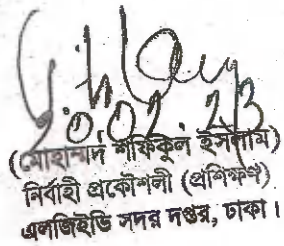 ২০.০২.২৩
(মোহাম্মদ শফিকুল ইসলাম)
নির্বাহী প্রকৌশলী (প্রশিক্ষণ)
এলজিইডি সদর দপ্তর, ঢাকা।